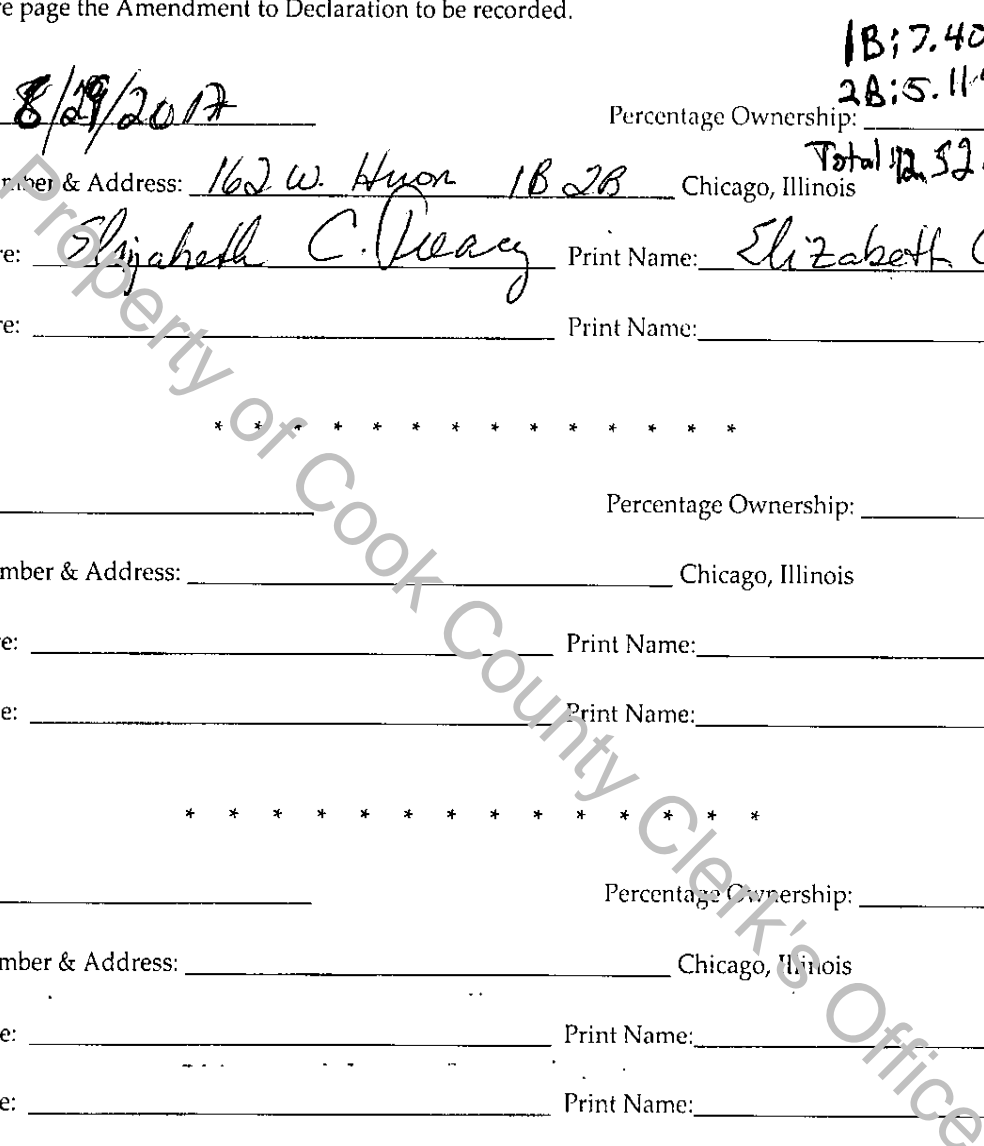 re page the Amendment to Declaration to be recorded.
1B: 7.40
2B: 5.11
8/29/2017 Percentage Ownership:
Total 12.52
mber & Address: 162 W. Huron 1B 2B Chicago, Illinois
re: Elizabeth C. Print Name: Elizabeth C
re: Print Name:
* * * * * * * * * * * * * *
Percentage Ownership:
mber & Address: Chicago, Illinois
re: Print Name:
e: Print Name:
* * * * * * * * * * * * * *
Percentage Ownership:
mber & Address: Chicago, Illinois
e: Print Name:
e: Print Name:
Property of Cook County Clerk's Office